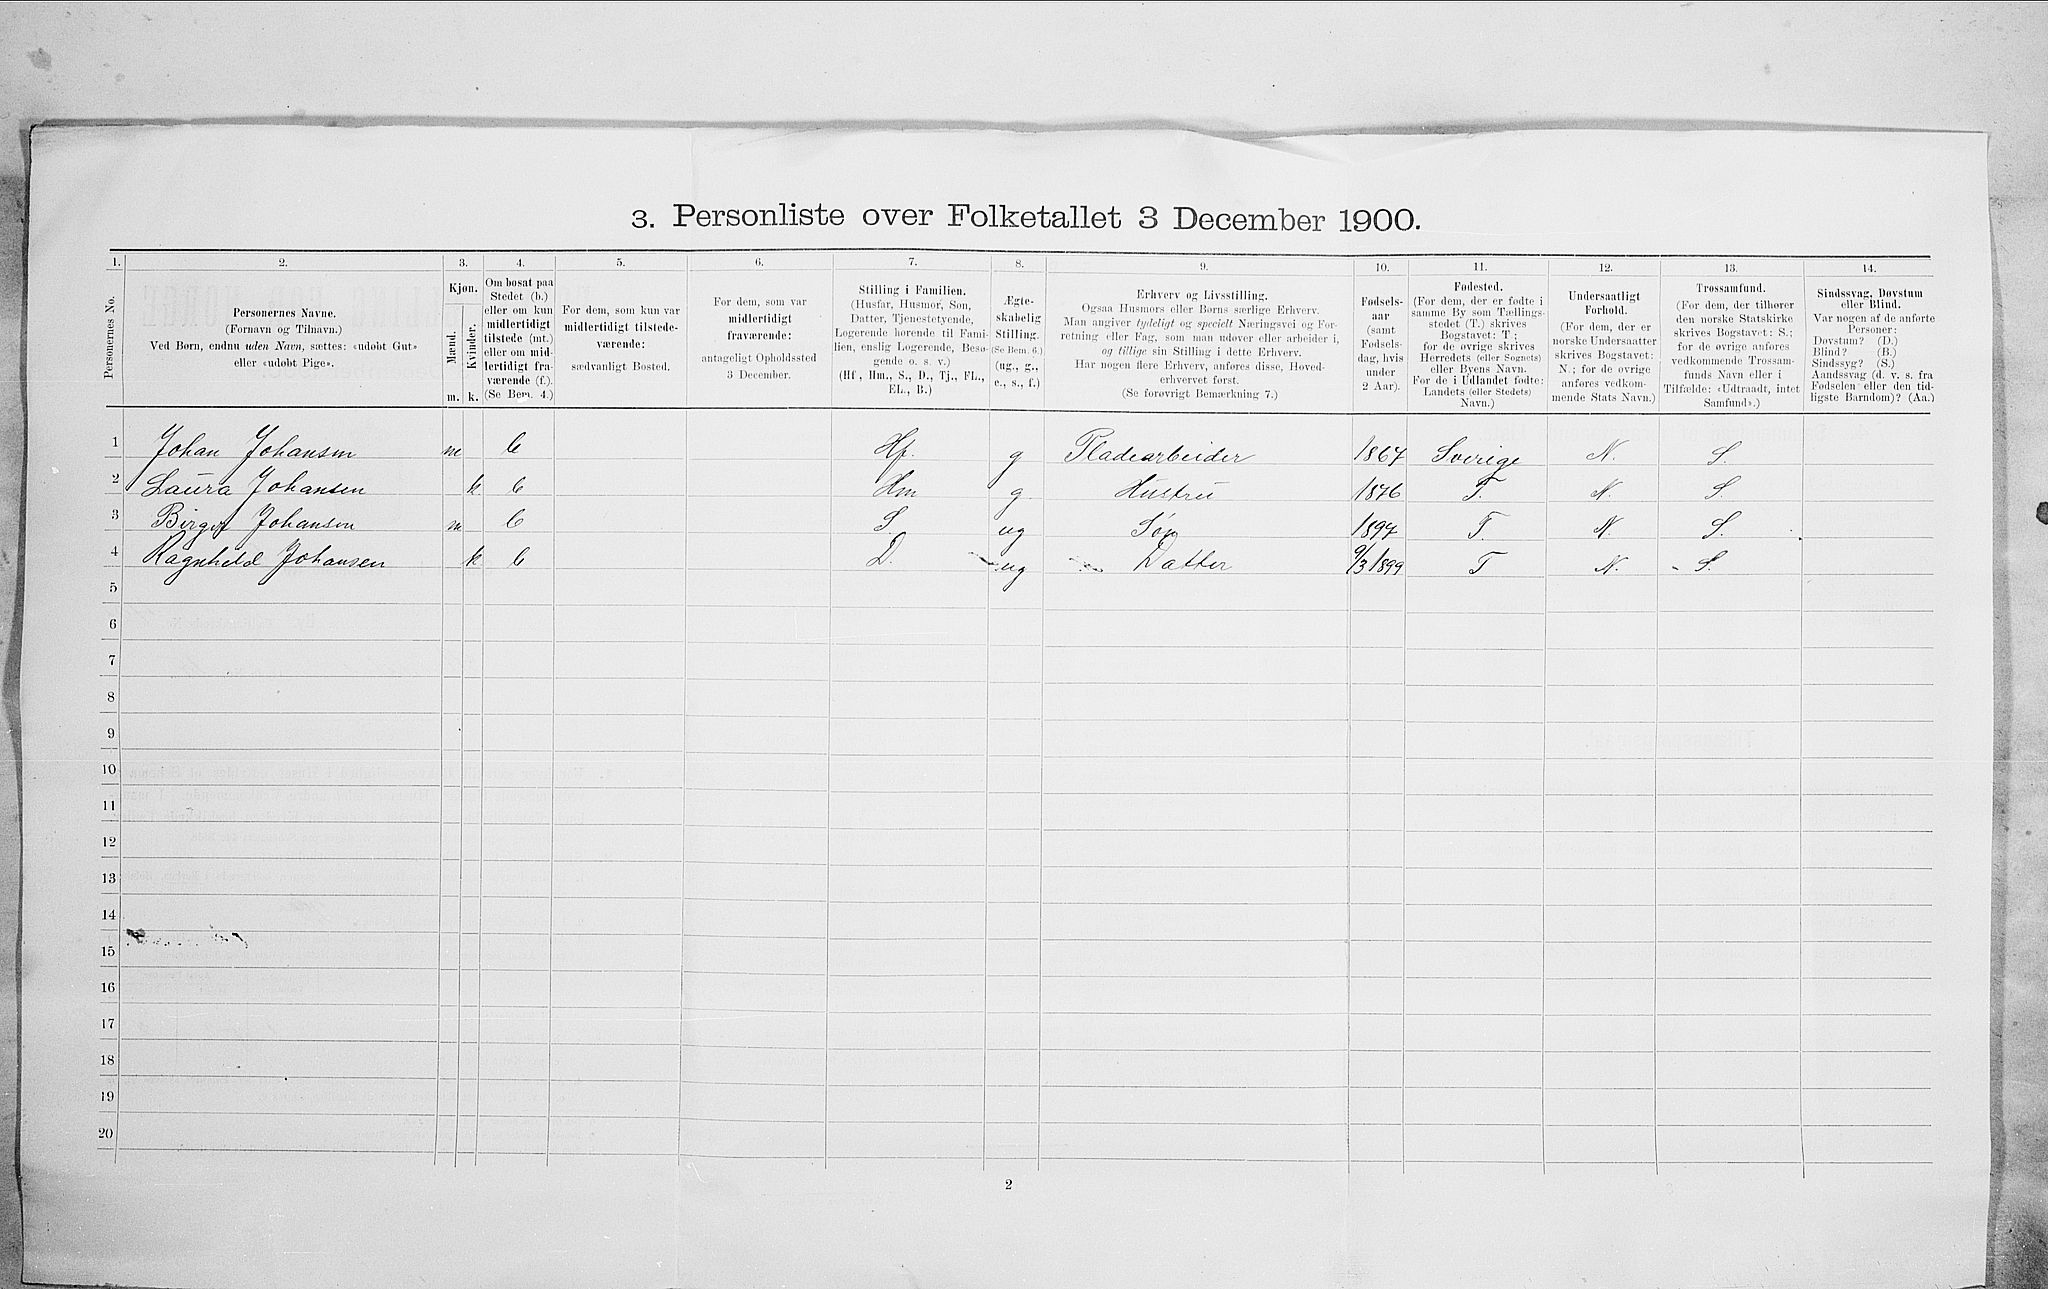 3. Personliste over Folketallet 3 December 1900.
1. 2. 3. 4. 5. 6. 7. 8. 9. 10. 11. 12. 13. 14.
Personernes No.
Personernes Navne.
(Fornavn og Tilnavn.)
Ved Børn, endnu uden Navn, sættes: «udøbt Gut»
eller «udøbt Pige».
Kjøn.
Mænd.
Kvinder.
m. k.
Om bosat paa
Stedet (b.)
eller om kun
midlertidigt
tilstede (mt.)
eller om mid-
lertidigt fra-
værende (f.).
(Se Bem. 4.)
For dem, som kun var
midlertidigt tilstede-
værende:
sædvanligt Bosted.
For dem, som var
midlertidigt
fraværende:
antageligt Opholdssted
3 December.
Stilling i Familien.
(Husfar, Husmor, Søn,
Datter, Tjenestetyende,
Logerende hørende til Fami-
lien, enslig Logerende, Besø-
gende o. s. v.)
(Hf, Hm., S., D., Tj., FL.,
EL., B.)
Ægte-
skabelig
Stilling.
(Se Bem. 6.)
(ug., g.,
e., s., f.)
Erhverv og Livsstilling.
Ogsaa Husmors eller Børns særlige Erhverv.
Man angiver tydeligt og specielt Næringsvei og For-
retning eller Fag, som man udøver eller arbeider i,
og tillige sin Stilling i dette Erhverv.
Har nogen flere Erhverv, anføres disse, Hoved-
erhvervet først.
(Se forøvrigt Bemærkning 7.)
Fødsels-
aar
(samt
Fødsels-
dag, hvis
under
2 Aar).
Fødested.
(For dem, der er fødte i
samme By som Tællings-
stedet (T.) skrives
Bogstavet: T;
for de øvrige skrives
Herredets (eller Sognets)
eller Byens Navn.
For de i Udlandet fødte:
Landets (eller Stedets)
Navn.)
Undersaatligt
Forhold.
(For dem, der er
norske Undersaatter
skrives Bogstavet:
N.; for de øvrige
anføres vedkom-
mende Stats Navn.)
Trossamfund.
(For dem, der tilhører
den norske Statskirke
skrives Bogstavet: S.;
for de øvrige anføres
vedkommende Trossam-
funds Navn eller i
Tilfælde: «Udtraadt, intet
Samfund».)
Sindssvag, Døvstum
eller Blind.
Var nogen af de anførte
Personer:
Døvstum? (D.)
Blind? (B.)
Sindssyg? (S.)
Aandssvag (d. v. s. fra
Fødselen eller den tid-
ligste Barndom)? (Aa.)
1 Johan Johansen m b Hf. g Pladearbeider 1867 Sverige N. S.
2 Laura Johansen k b Hm g Hustru 1876 T. N. S.
3 Birger Johansen m b S ug Søn 1897 T. N. S.
4 Ragnhild Johansen k b D. ug Datter 9/3 1899 T N. S.
5
6
7
8
9
10
11
12
13
14
15
16
17
18
19
20
2